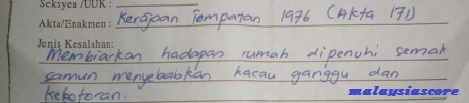 Seksyen /UUK :
Akta/Enakmen : Kerajaan Tempatan 1976 (Akta 171)
Jenis Kesalahan:
Membiarkan hadapan rumah dipenuhi semak
samun menyebabkan kacau ganggu dan
kekotoran.
malaysiascore